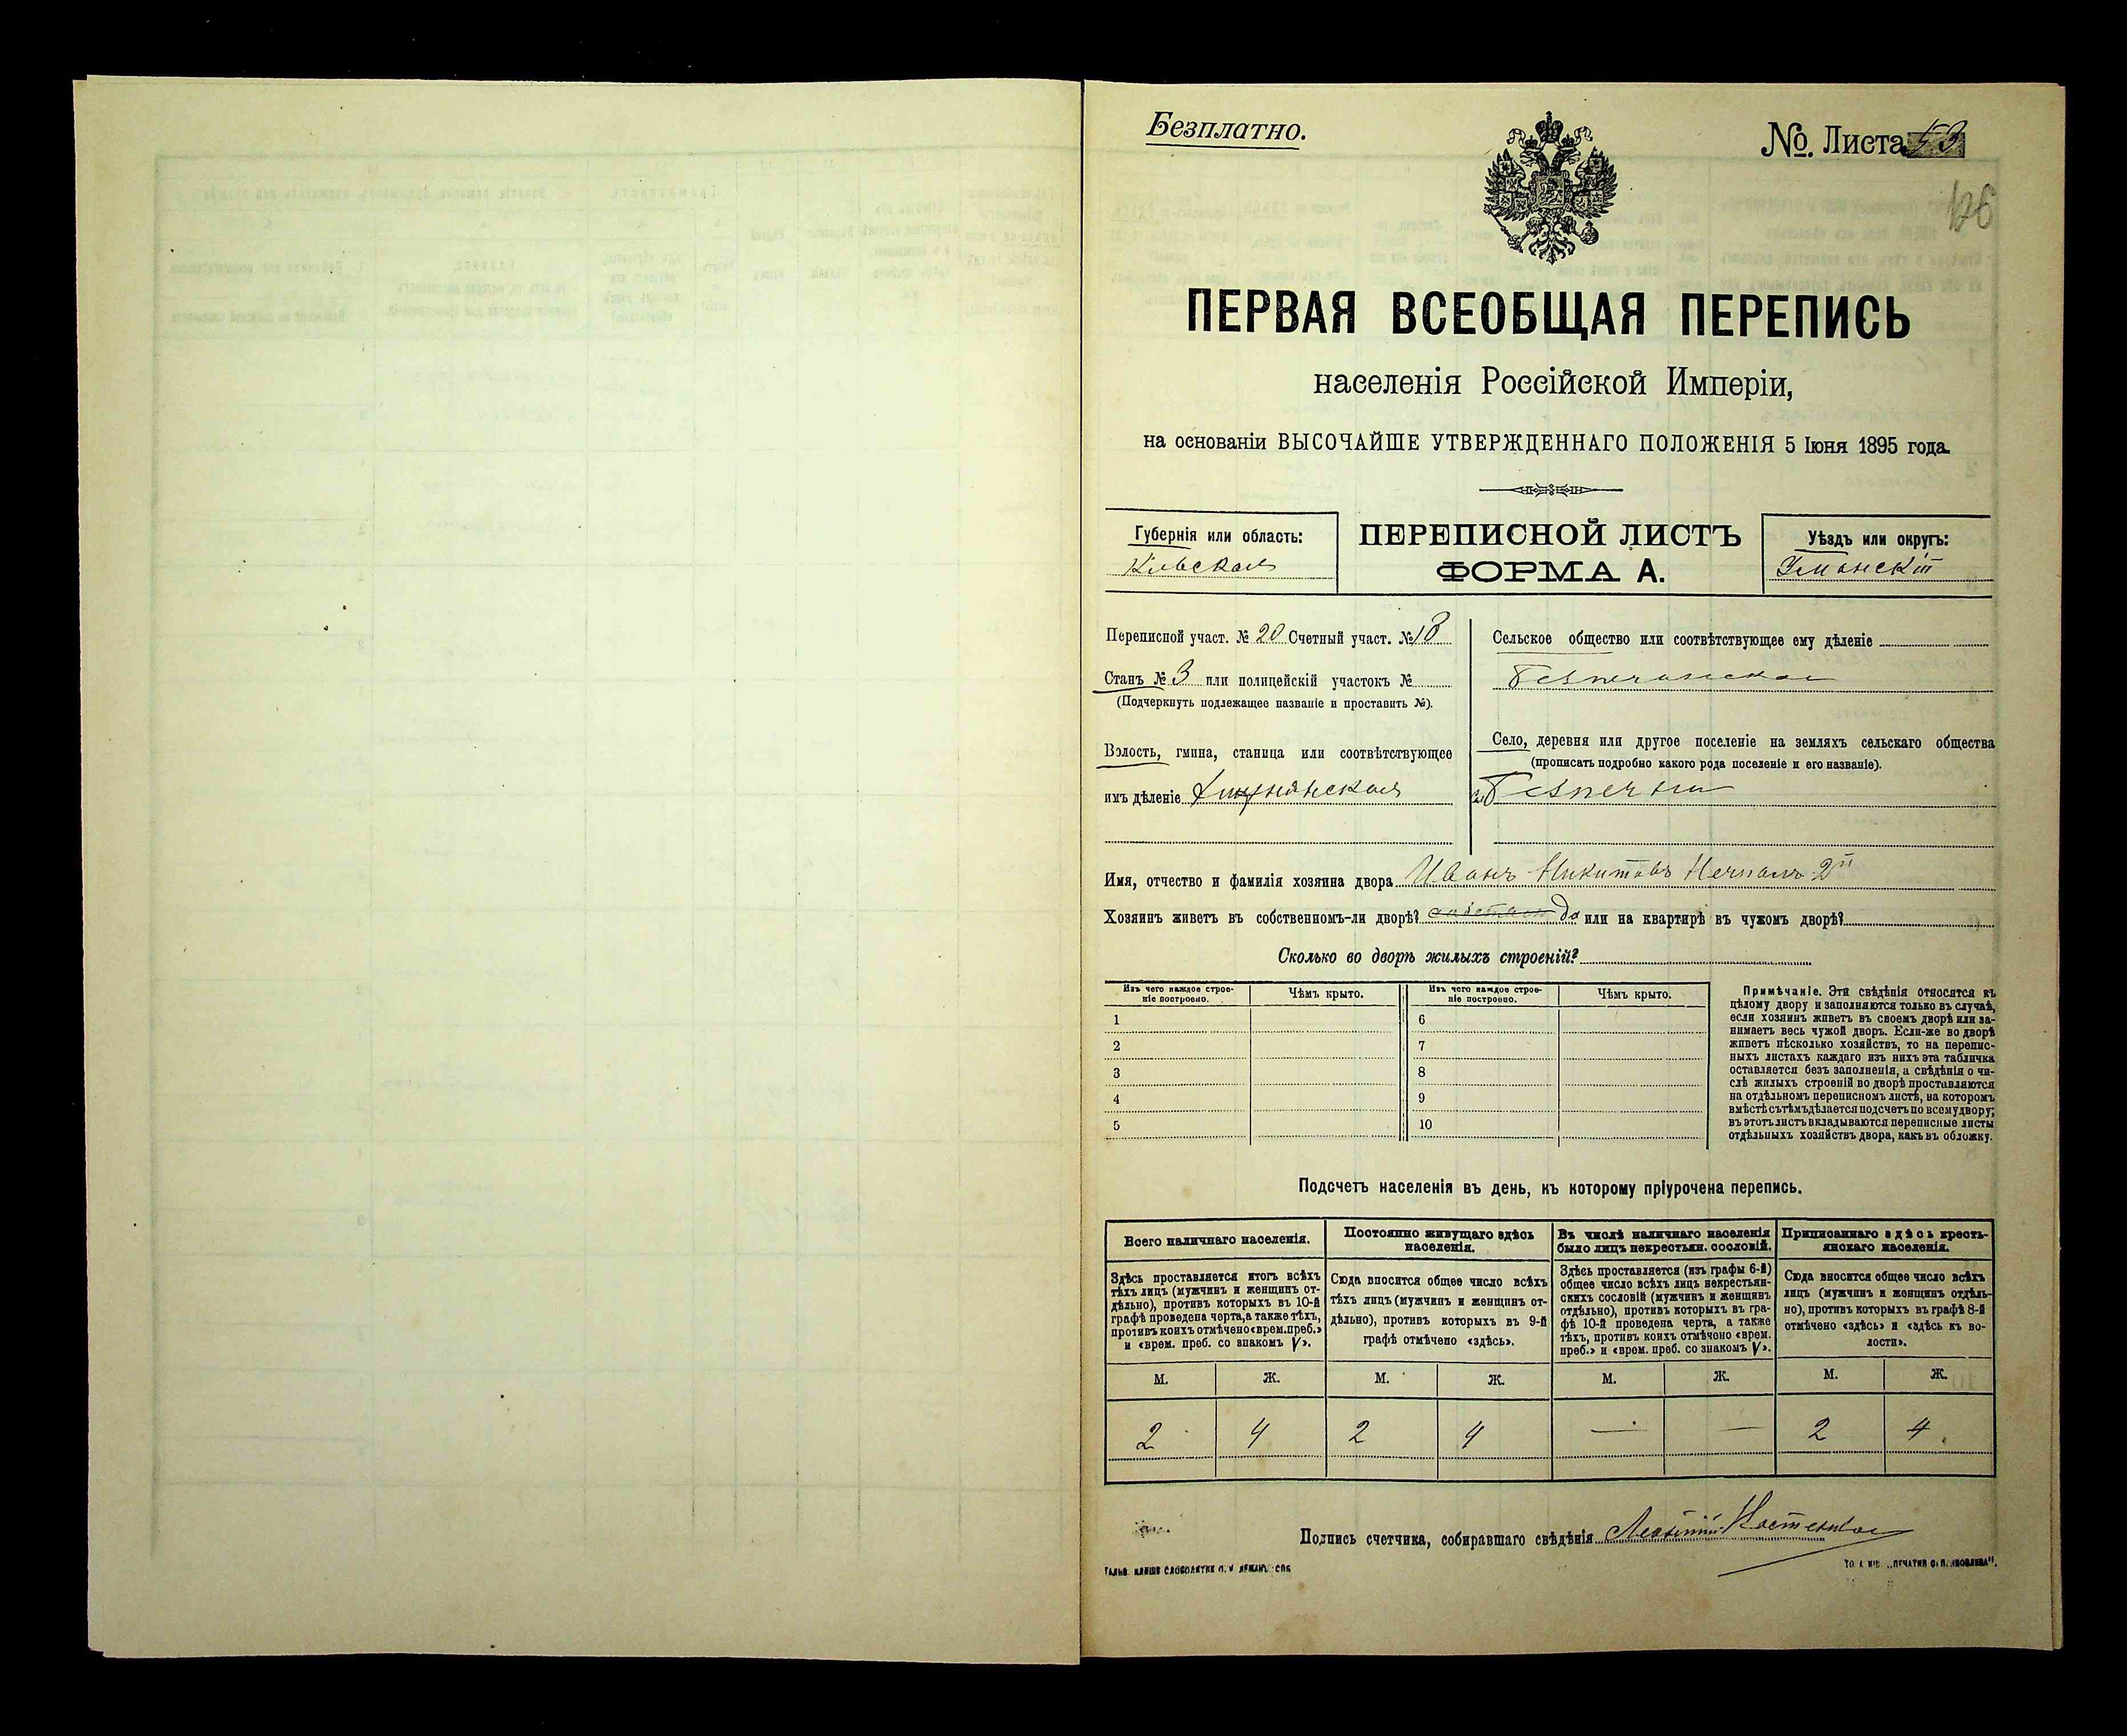 Безплатно.
№ Листа 53
126
ПЕРВАЯ ВСЕОБЩАЯ ПЕРЕПИСЬ
населенія Россійской Имперіи,
на основаніи ВЫСОЧАЙШЕ УТВЕРЖДЕННАГО ПОЛОЖЕНІЯ 5 Іюня 1895 года.
Губернія или область:
Кіевская
ПЕРЕПИСНОЙ ЛИСТЪ
ФОРМА А.
Уѣздъ или округъ:
Уманскій
Переписной участ. № 20 Счетный участ. № 18
Станъ № 3 или полицейскій участокъ №
(Подчеркнуть подлежащее названіе и проставить №).
Волость, гмина, станица или соотвѣтствующее
имъ дѣленіе
Сельское общество или соотвѣтствующее ему дѣленіе
Безпечанское
Село, деревня или другое поселеніе на земляхъ сельскаго общества
(прописать подробно какого рода поселеніе и его названіе).
Имя, отчество и фамилія хозяина двора Иванъ Никитовъ 2й
Хозяинъ живетъ въ собственномъ-ли дворѣ? Да или на квартирѣ въ чужомъ дворѣ?
Сколько во дворѣ жилыхъ строеній?
Изъ чего каждое строе-
ніе построено.
Чѣмъ крыто.
Изъ чего каждое строе-
ніе построено.
Чѣмъ крыто.
1 6
2 7
3 8
4 9
5 10
Примѣчаніе. Эти свѣдѣнія относятся къ
цѣлому двору и заполняются только въ случаѣ,
если хозяинъ живетъ въ своемъ дворѣ или за-
нимаетъ весь чужой дворъ. Если-же во дворѣ
живетъ нѣсколько хозяйствъ, то на перепис-
ныхъ листахъ каждаго изъ нихъ эта табличка
оставляется безъ заполненія, а свѣдѣнія о чи-
слѣ жилыхъ строеній во дворѣ проставляются
на отдѣльномъ переписномъ листѣ, на которомъ
вмѣстѣ съ тѣмъ дѣлается подсчетъ по всему двору;
въ этотъ листъ вкладываются переписные листы
отдѣльныхъ хозяйствъ двора, какъ въ обложку.
Подсчетъ населенія въ день, къ которому пріурочена перепись.
Всего наличнаго населенія.
Здѣсь проставляется итогъ всѣхъ
тѣхъ лицъ (мужчинъ и женщинъ от-
дѣльно), противъ которыхъ въ 10-й
графѣ проведена черта, а также тѣхъ,
противъ коихъ отмѣчено «врем. преб.»
и «врем. преб. со знакомъ V».
Постоянно живущаго здѣсь
населенія.
Сюда вносится общее число всѣхъ
тѣхъ лицъ (мужчинъ и женщинъ от-
дѣльно), противъ которыхъ въ 9-й
графѣ отмѣчено «здѣсь».
Въ числѣ наличнаго населенія
было лицъ некрестьян. сословій.
Здѣсь проставляется (изъ графы 6-й)
общее число всѣхъ лицъ некрестьян-
скихъ сословій (мужчинъ и женщинъ
отдѣльно), противъ которыхъ въ гра-
фѣ 10-й проведена черта, а также
тѣхъ, противъ коихъ отмѣчено «врем.
преб.» и «врем. преб. со знакомъ V».
Приписаннаго здѣсь кресть-
янскаго населенія.
Сюда вносится общее число всѣхъ
лицъ (мужчинъ и женщинъ отдѣль-
но), противъ которыхъ въ графѣ 8-й
отмѣчено «здѣсь» и «здѣсь къ во-
лости».
М. Ж. М. Ж. М. Ж. М. Ж.
2 4 2 4 — — 2 4
Подпись счетчика, собиравшаго свѣдѣнія